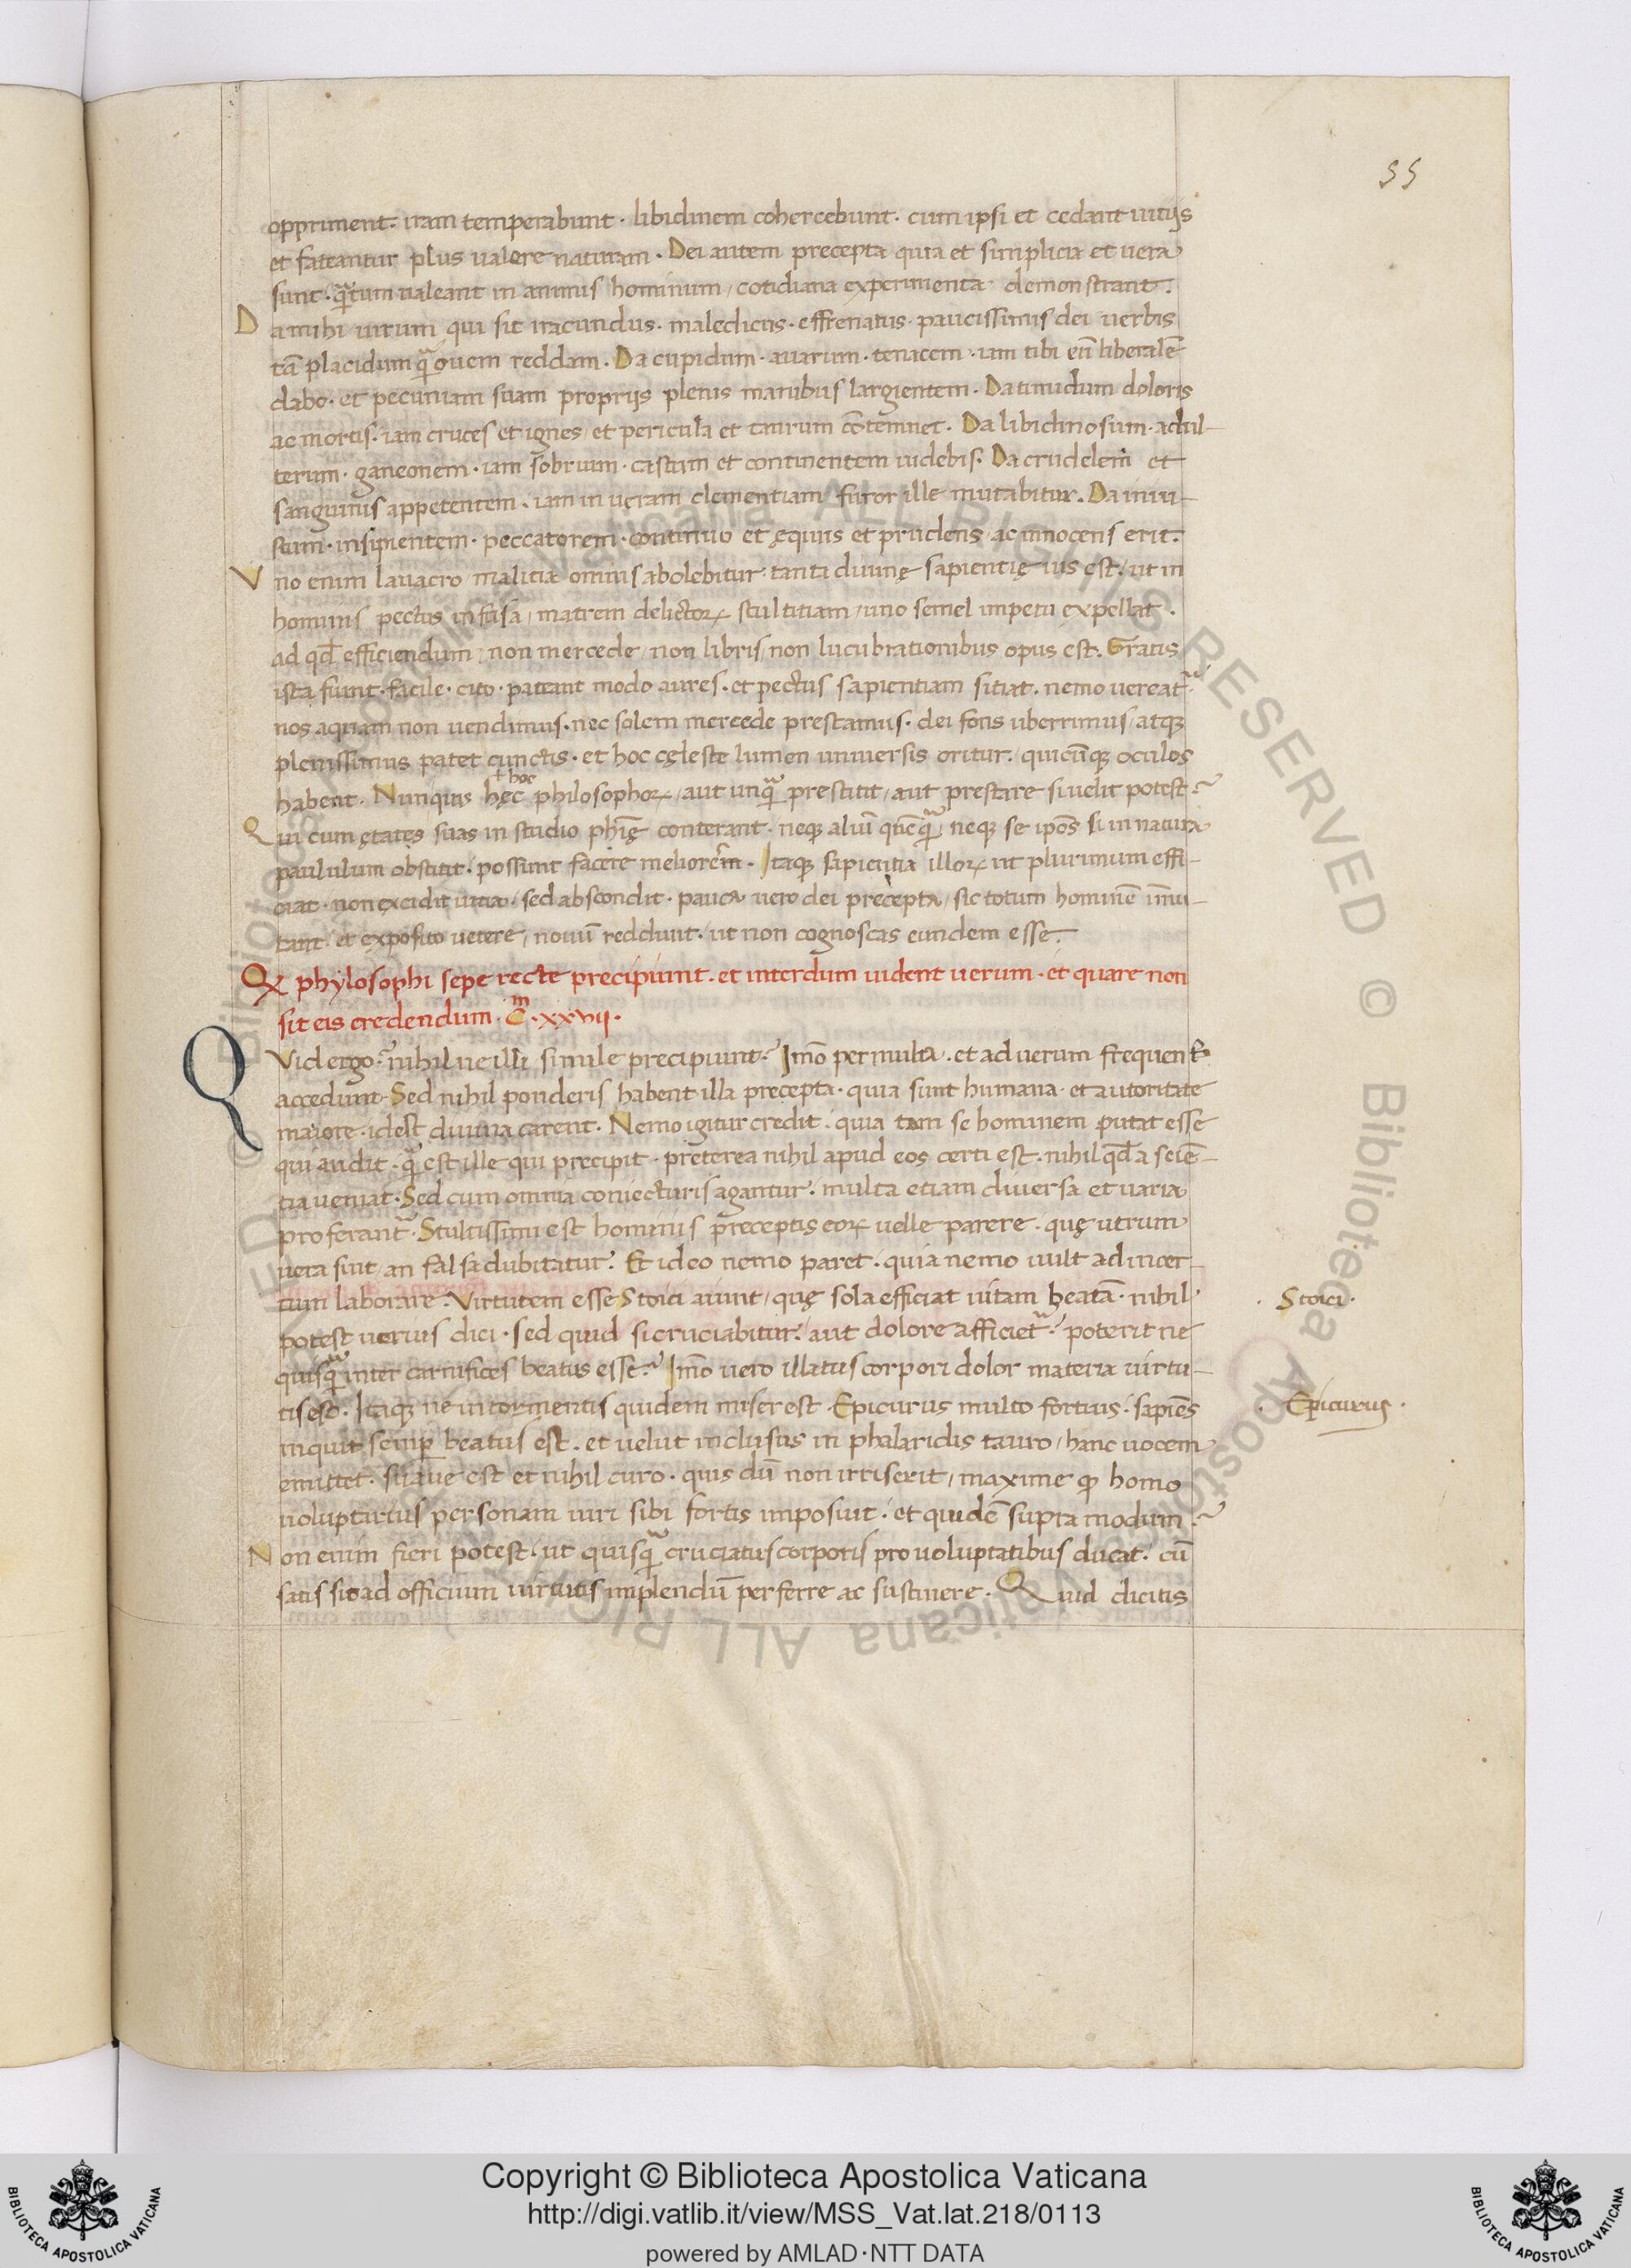 55
opprıment. iram temperabunt · libidinem cohercebunt. cum ipsi et cedant uitijs
et fateantur plus ualere naturam. Dei autem precepta quia et simplicia et uera
sunt. q̃tum ualeant in animis hominum / cotidiana experimenta demonstrant.
Da mihi uirum qui sit iracundus. maledicus. effrenatus. paucissimis dei uerbis
tã placidum q̃ ouem reddam. Da cupidum. auarum. tenacem. iam tibi eũ liberalẽ
dabo. et pecuniam suam proprijs plenis manibus largientem. Da timidum doloris
ac mortis. iam cruces et ignes / et pericula et taurum cõtemnet. Da libidinosum. adul-
terum. ganeonem. iam sobrium. castum et continentem uidebis. Da crudelem et
sanguinis appetentem. iam in ueram clementiam furor ille mutabitur. Da iniu-
stum. insipientem. peccatorem. continuo et ęquus et prudens ac innocens erit.
Vno enim lauacro malitia omnis abolebitur. tanti diuinę sapientię uis est / ut in
hominis pectus infusa / matrem delictoꝝ stultitiam / uno semel impetu expellat.
ad qđ efficiendum / non mercede / non libris / non lucubrationibus opus est. Gratis
ista fiunt. facile. cito. pateant modo aures. et pectus sapientiam sitiat. nemo uereat᷑
nos aquam non uendimus. nec solem mercede prestamus. dei fons uberrimus / atqꝫ
plenissimus patet cunctis. et hoc cęleste lumen uniuersis oritur. quicũqꝫ oculos
hoc
habent. Nunquis hęc philosophoꝝ / aut unq̃ prestitit / aut prestare si uelit potest?
Qui cum ętates suas in studio phię conterant. neqꝫ aliũ neqꝫ se ip̃os si in natura
paululum obstitit. possunt facere meliorem. Itaqꝫ sapientia illoꝝ ut plurimum effi-
ciat. non excidit uitia. sed abscondit. pauca uero dei precepta / sic totum hominẽ im̃u-
tant. et exposito uetere / nouũ reddunt. ut non cognoscas eundem esse.
Qꝫ phylosophi sepe recte precipiunt. et interdum uident uerum. et quare non
sit eis credendum. C.m xxvij.
QVid ergo? nihil ne illi simile precipiunt? Imõ permulta. et ad uerum frequenter
accedunt. Sed nihil ponderis habent illa precepta. quia sunt humana. et autoritate
maiore. idest diuina carent. Nemo igitur credit. quia tam se hominem putat esse
qui audit. q̃ est ille qui precipit. preterea nihil apud eos certi est. nihil qđ a sciẽ-
tia ueniat. Sed cum omnia coniecturis agantur. multa etiam diuersa et uaria
proferant᷑. Stultissimi est hominis preceptis eoꝝ uelle parere. quę utrum
uera sint / an falsa dubitatur. Et ideo nemo paret. quia nemo uult ad incer-
tum laborare. Virtutem esse Stoici aiunt / quę sola efficiat uitam beatã. nihil
potest uerius dici. sed quid si cruciabitur / aut dolore afficiet᷑? poterit ne
quisq̃ inter carnifices beatus esse? Imõ uero illatus corpori dolor materia uirtu-
tis est. Itaqꝫ ne in tormentis quidem miser est. Epicurus multo fortius. sapiẽs
inquit semp̱ beatus est. et uelut inclusus in phalaridis tauro / hanc uocem
emittet. suaue est et nihil curo. quis eũ non irriserit / maxime qꝫ homo
uoluptarius personam uiri sibi fortis imposuit. et quidẽ supra modum?
Non enim fieri potest. ut quisq̃ cruciatus corporis pro uoluptatibus ducat. cũ
satis sit ad officium uirtutis implendũ perferre ac sustinere. Quid dicitis
. Stoici .
. Epicurus .
Copyright © Biblioteca Apostolica Vaticana
http://digi.vatlib.it/view/MSS_Vat.lat.218/0113
powered by AMLAD·NTT DATA
BIBLIOTECA APOSTOLICA VATICANA
BIBLIOTECA APOSTOLICA VATICANA